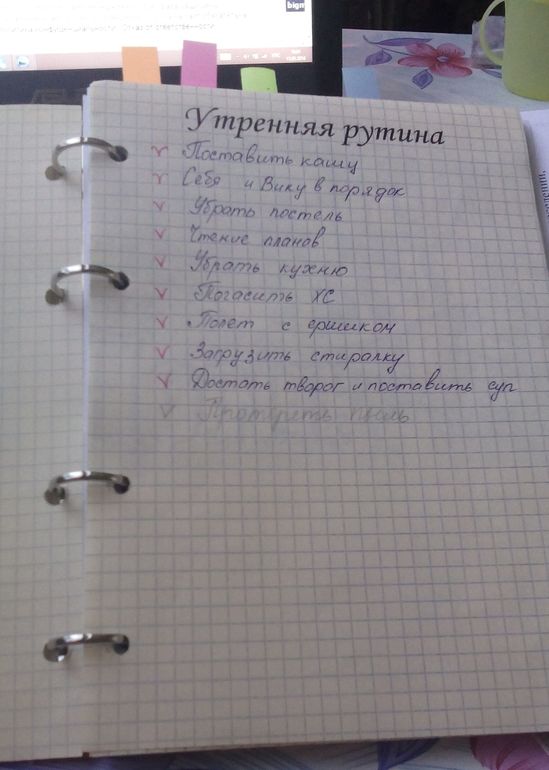 bign
Утренняя рутина
Поставить кашу
Себя и Вику в порядок
Убрать постель
Чтение планов
Убрать кухню
Погасить ХС
Полет с ершиком
Загрузить стиралку
Достать творог и поставить суп
Протереть пыль